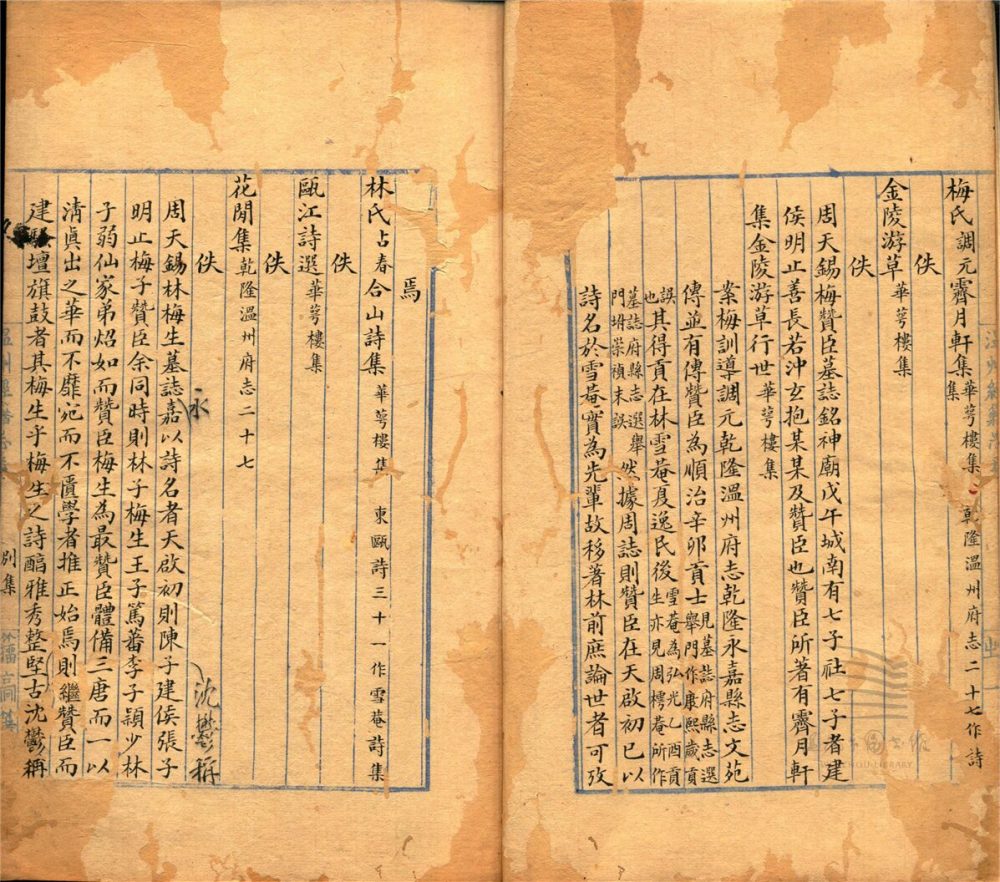 梅氏調元霽月軒集華萼樓集、乾隆溫州府志二十七作詩集
佚
金陵游草華萼樓集
佚
周天錫梅贊臣墓誌銘神廟戊午城南有七子社七子者建
侯明止善長若沖玄抱某某及贊臣也贊臣所著有霽月軒
集金陵游草行世華萼樓集
案梅訓導調元乾隆溫州府志乾隆永嘉縣志文苑
傳並有傳贊臣為順治辛卯貢士見墓誌府縣志選舉門作康熙歲貢
誤也其得貢在林雪菴夏逸民後雪菴為弘光乙酉貢生亦見周樗菴所作
墓誌府縣志選舉門坿崇禎末誤然據周誌則贊臣在天啟初已以
詩名於雪菴實為先輩故移著林前庶論世者可攷
焉
林氏占春合山詩集華萼樓集 東甌詩三十一作雪菴詩集
佚
甌江詩選華萼樓集
佚
花閒集乾隆溫州府志二十七
佚
周天錫林梅生墓誌嘉以詩名者天啟初則陳子建侯張子
永
明止梅子贊臣余同時則林子梅生王子篤蕃李子穎少林
子弱仙家弟炤如而贊臣梅生為最贊臣體備三唐而一以
清真出之華而不靡宛而不匱學者推正始焉則繼贊臣而
建壇旗鼓者其梅生乎梅生之詩醇雅秀整堅古沈鬱稱
沈鬱稱
別集